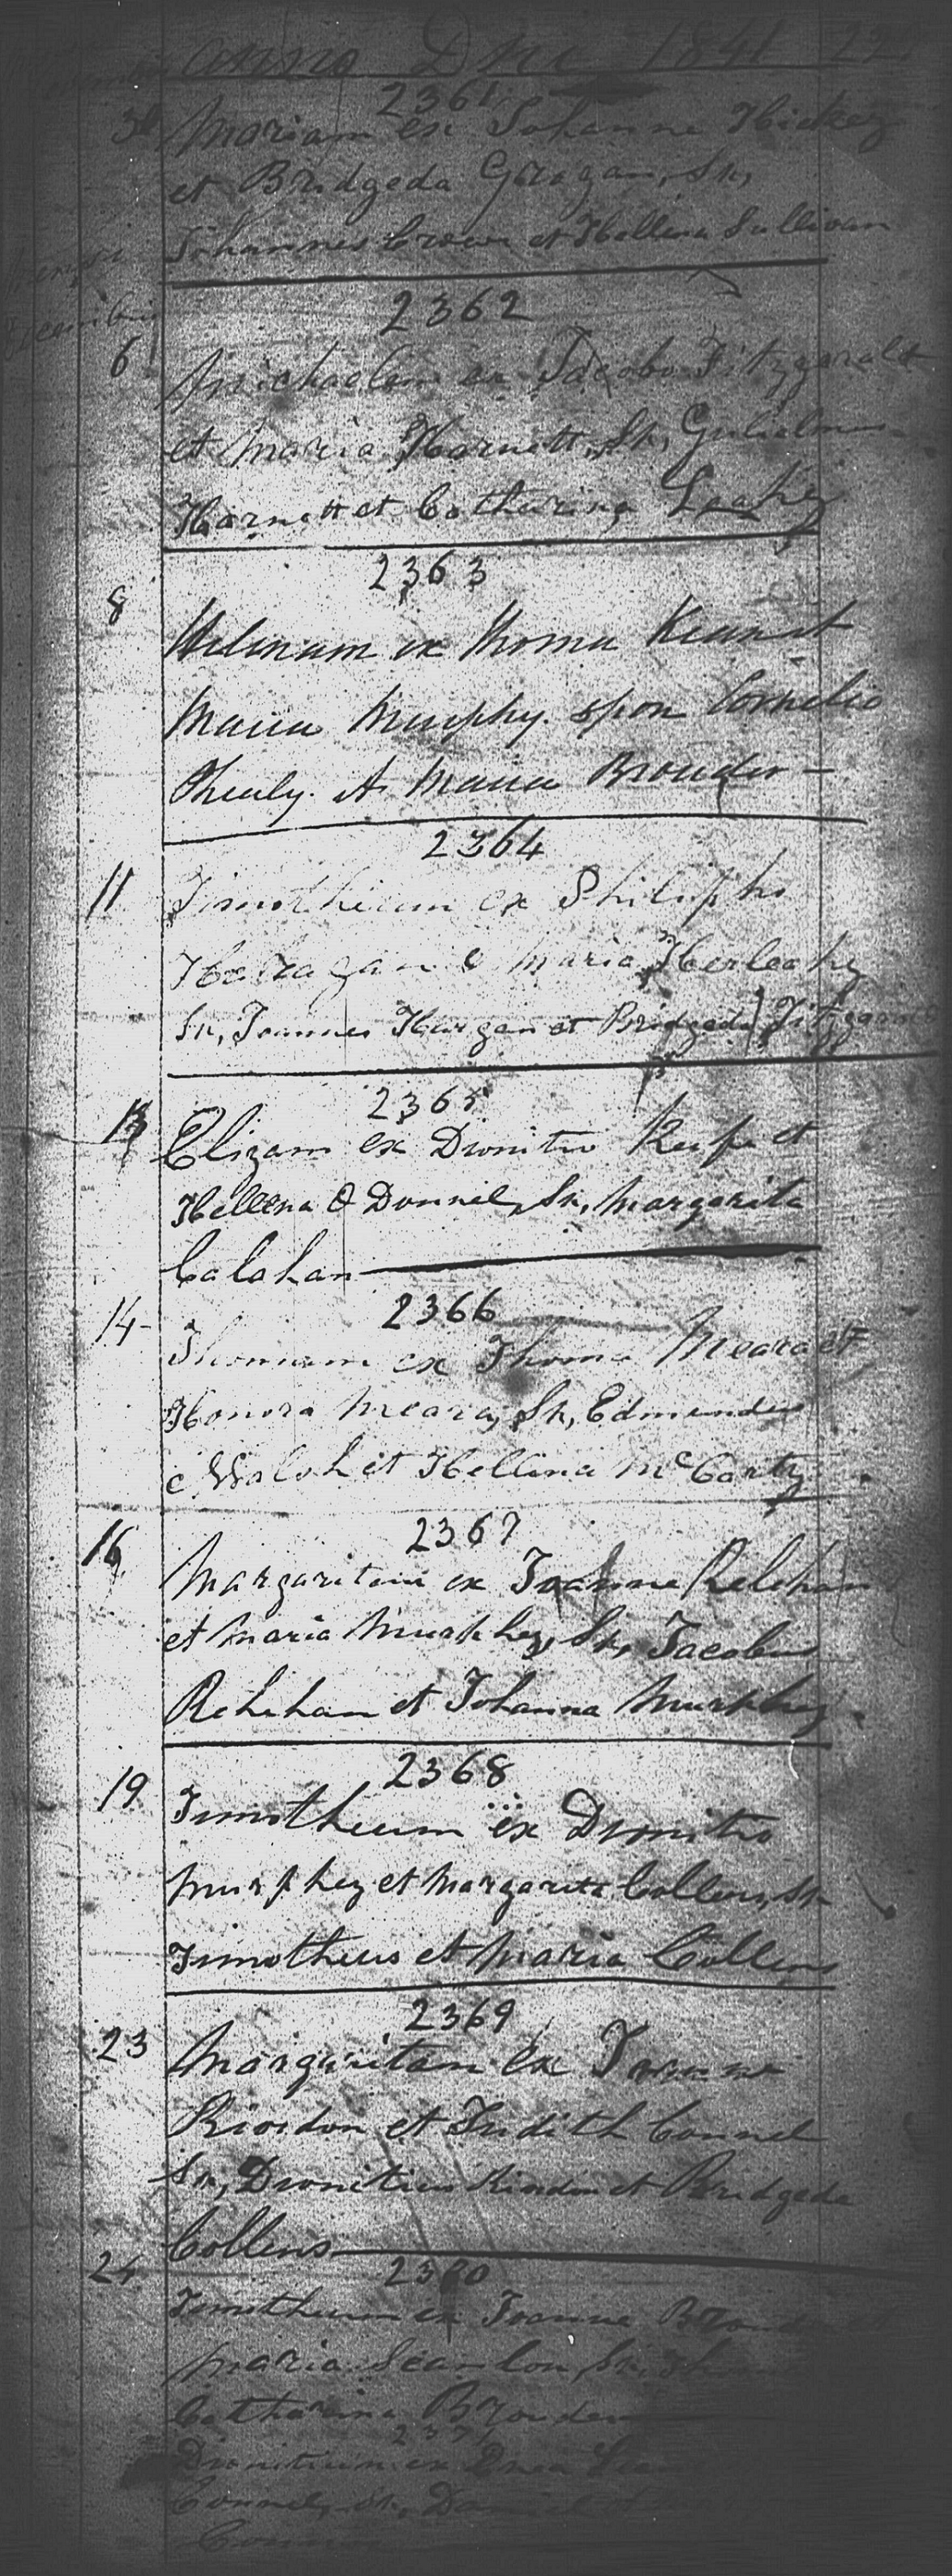 anno Dni 1841 22
2361
30 Mariam ex Johanne Hickey
et Bridgeda Gragan, Sp,
Johannes Crown et Hellena Sullivan
2362
Decembris
6 Michaelem ex Jacobo Fitzgerald
et Maria Harnett, Sp, Gulielmus
Harnett et Catharina Leahy
2363
8 Helenam ex Thoma Kean et
Maria Murphy. spon Cornelio
Sheuly. et Maria Brouder —
2364
11 Timotheum ex Philipho
Halragan e Maria Herleahy
Sp, Joannes Hurgan et Bridgeda
2365
13 Elizam ex Dionitio Keefe et
Hellena O Donnel, Sp, Margarita
Calahan
2366
14 Thomam ex Thoma Meara et
Honora Meara, Sp, Edmundus
Walsh et Hellena McCarty
2367
16 Margaritam ex Joanne Relehan
et Maria Murphey, Sp, Jacobus
Relehan et Johanna Murphey
2368
19 Timotheum ex Dionitio
Murphey et Margarita Collens, Sp
Timotheus et Maria Collens
2369
23 Margaritam ex Joanne
Riordon et Judith Connel
Sp, Dionitius Riordon et Bridgeda
Collens
2370
24 Timotheum ex Joanne
Maria Scanlon, Sp,
Catharina Brouder
2371
Dionitium ex
Connel, Sp, Daniel